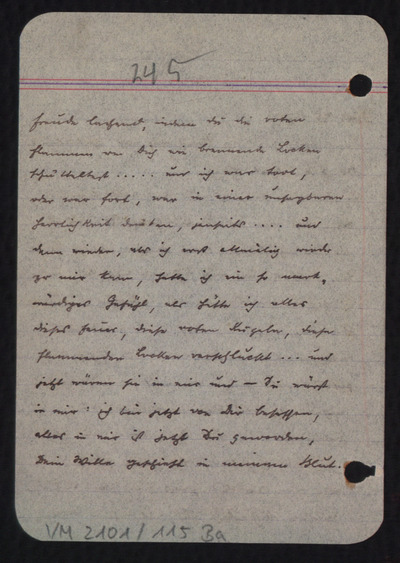 245
Freude lachend, indem du die roten
Flammen um dich wie brennende Locken
schütteltest ..... und ich war tot,
oder war fort, war in einer unsagbaren
Herrlichkeit draußen, jenseits .... und
dann wieder, als ich erst allmälig wieder
zu mir kam, hatte ich ein so merk-
würdiges Gefühl, als hätte ich alles
dieses Feuer, diese roten Kugeln, diese
flammenden Locken verschluckt ... und
jetzt wären sie in mir und — Du wärst
in mir: ich bin jetzt von Dir besessen,
alles in mir ist jetzt Du geworden,
Dein Wille geschieht in meinem Blut.
VM 2101/115 Ba